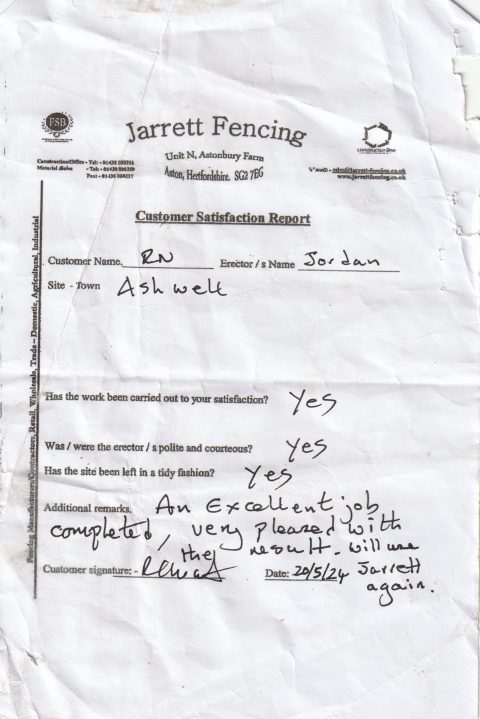 FSB
Jarrett Fencing
Unit N, Astonbury Farm
Aston, Hertfordshire. SG2 7EG
constructionline
Construction/Office - Tel:
Material Sales - Tel:
Fax:
sales@jarrett-fencing.co.uk
www.jarrettfencing.co.uk
Customer Satisfaction Report
Customer Name. RN Erector / s Name Jordan
Site - Town Ashwell
Has the work been carried out to your satisfaction? Yes
Was / were the erector / s polite and courteous? Yes
Has the site been left in a tidy fashion? Yes
Additional remarks. An Excellent job
completed, very pleased with
the result. will use
Jarrett
again.
Customer signature: - Date: 20/5/24
Fencing Manufacturer/Contractors, Retail, Wholesale, Trade – Domestic, Agricultural, Industrial